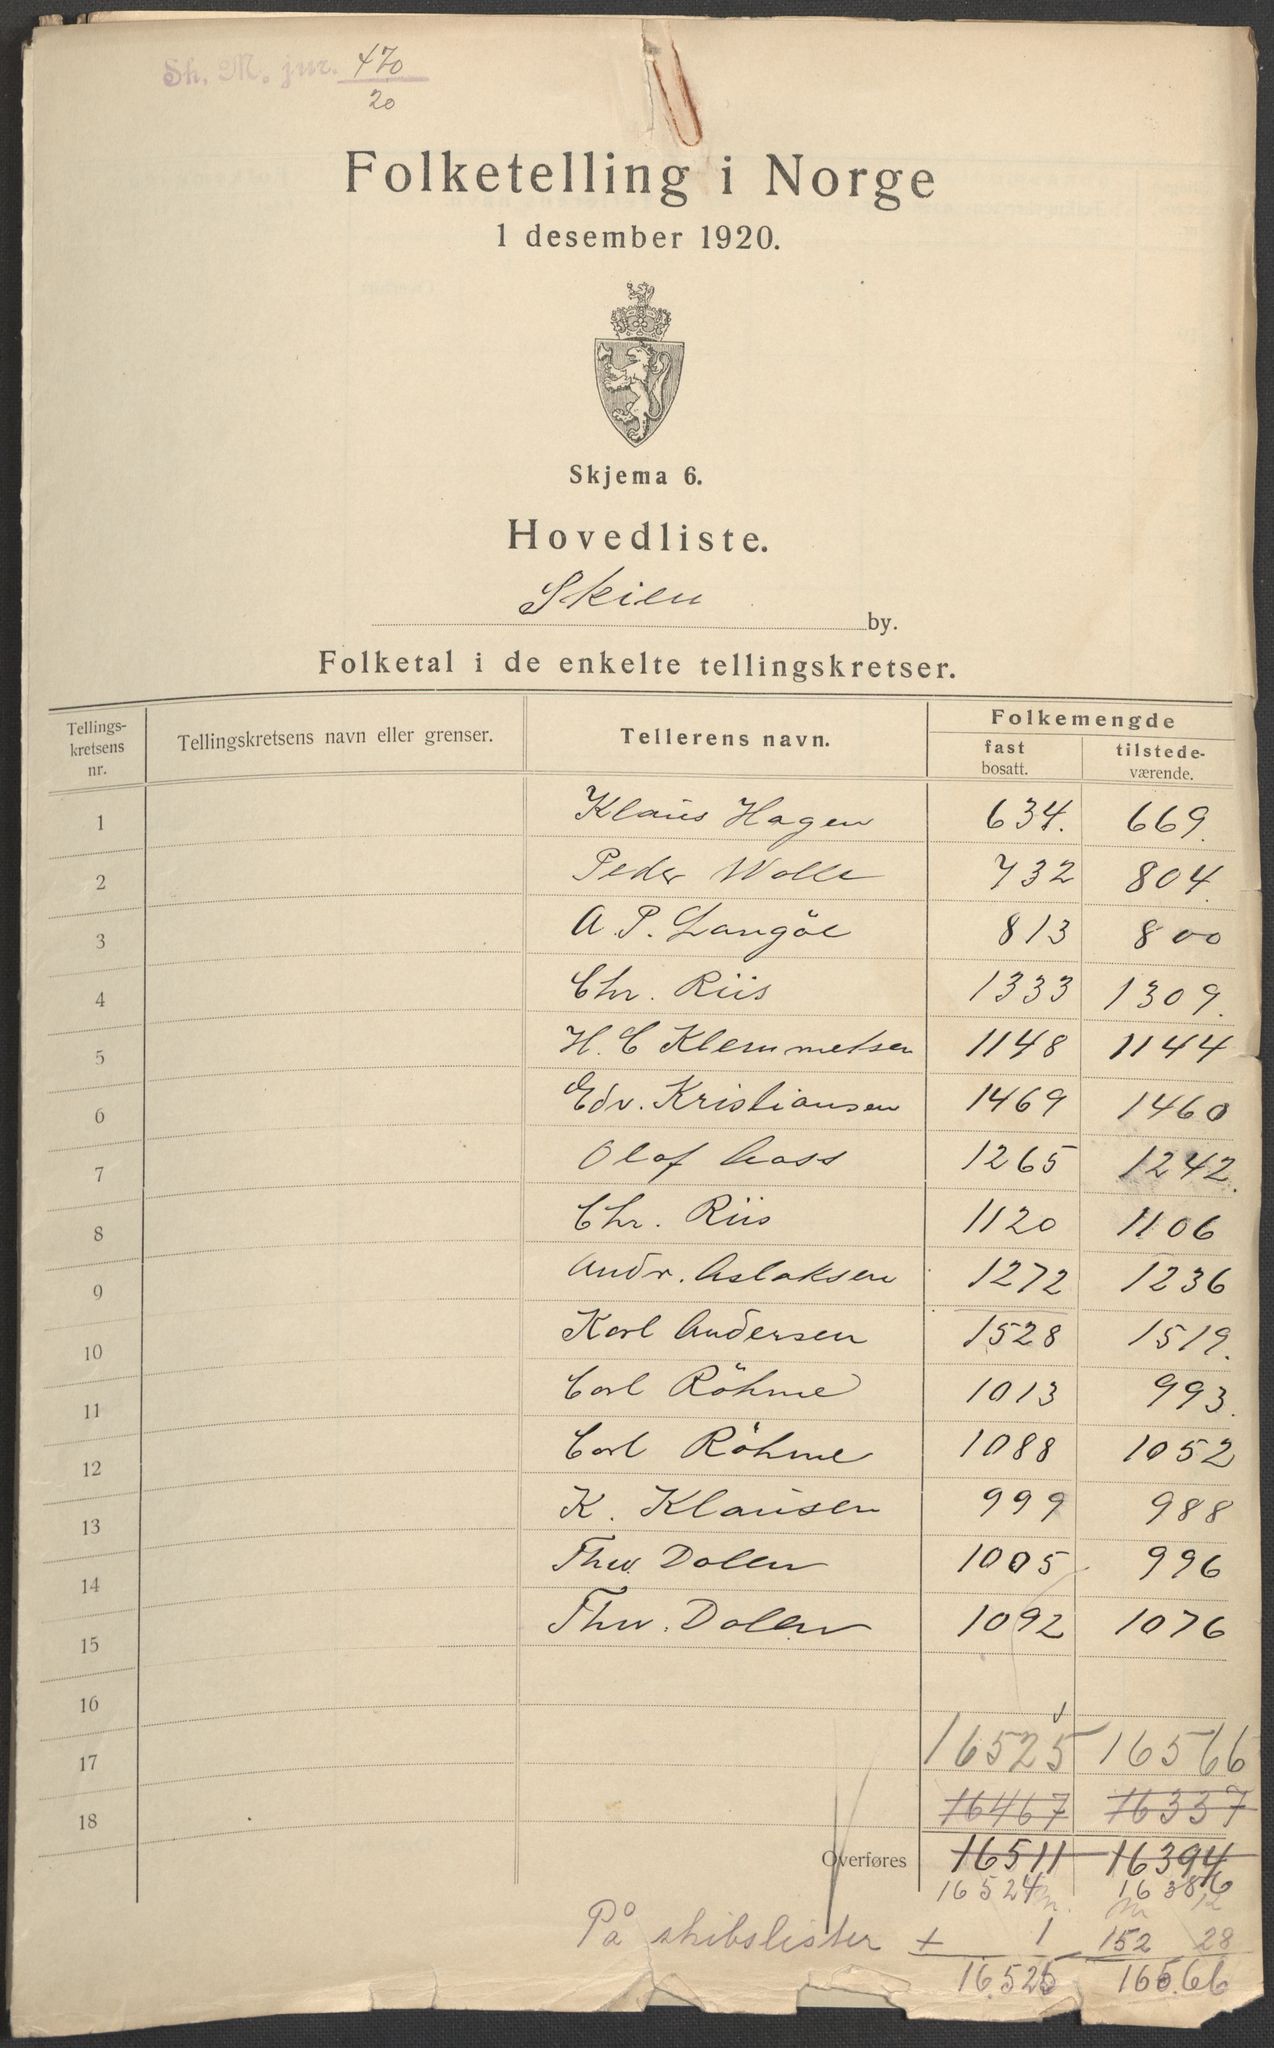 Sh. M. jnr. 470
20
Folketelling i Norge
1 desember 1920.
Skjema 6.
Hovedliste.
Skien by.
Folketal i de enkelte tellingskretser.
Tellings-kretsens nr. Tellingskretsens navn eller grenser. Tellerens navn. Folkemengde
fast bosatt. tilstede-værende.
1 Klaus Hagen 634. 669.
2 Peder Wolle 732 804.
3 A. P. Langöe 813 800
4 Chr. Riis 1333 1309.
5 H. C Klemmetsen 1148 1144
6 Edv. Kristiansen 1469 1460
7 Olaf Aass 1265 1242.
8 Chr. Riis 1120 1106
9 Andr. Aslaksen 1272 1236
10 Karl Andersen 1528 1519.
11 Carl Röhme 1013 993.
12 Carl Röhme 1088 1052
13 K. Klausen 999 988
14 Theo. Dolen 1005 996
15 Theo. Dolen 1092 1076
16
17 16525 16566
18 16467 16337
Overføres 16511 16394
16524 16386
12
På skibslister + 1 152 28
16.525 165.66